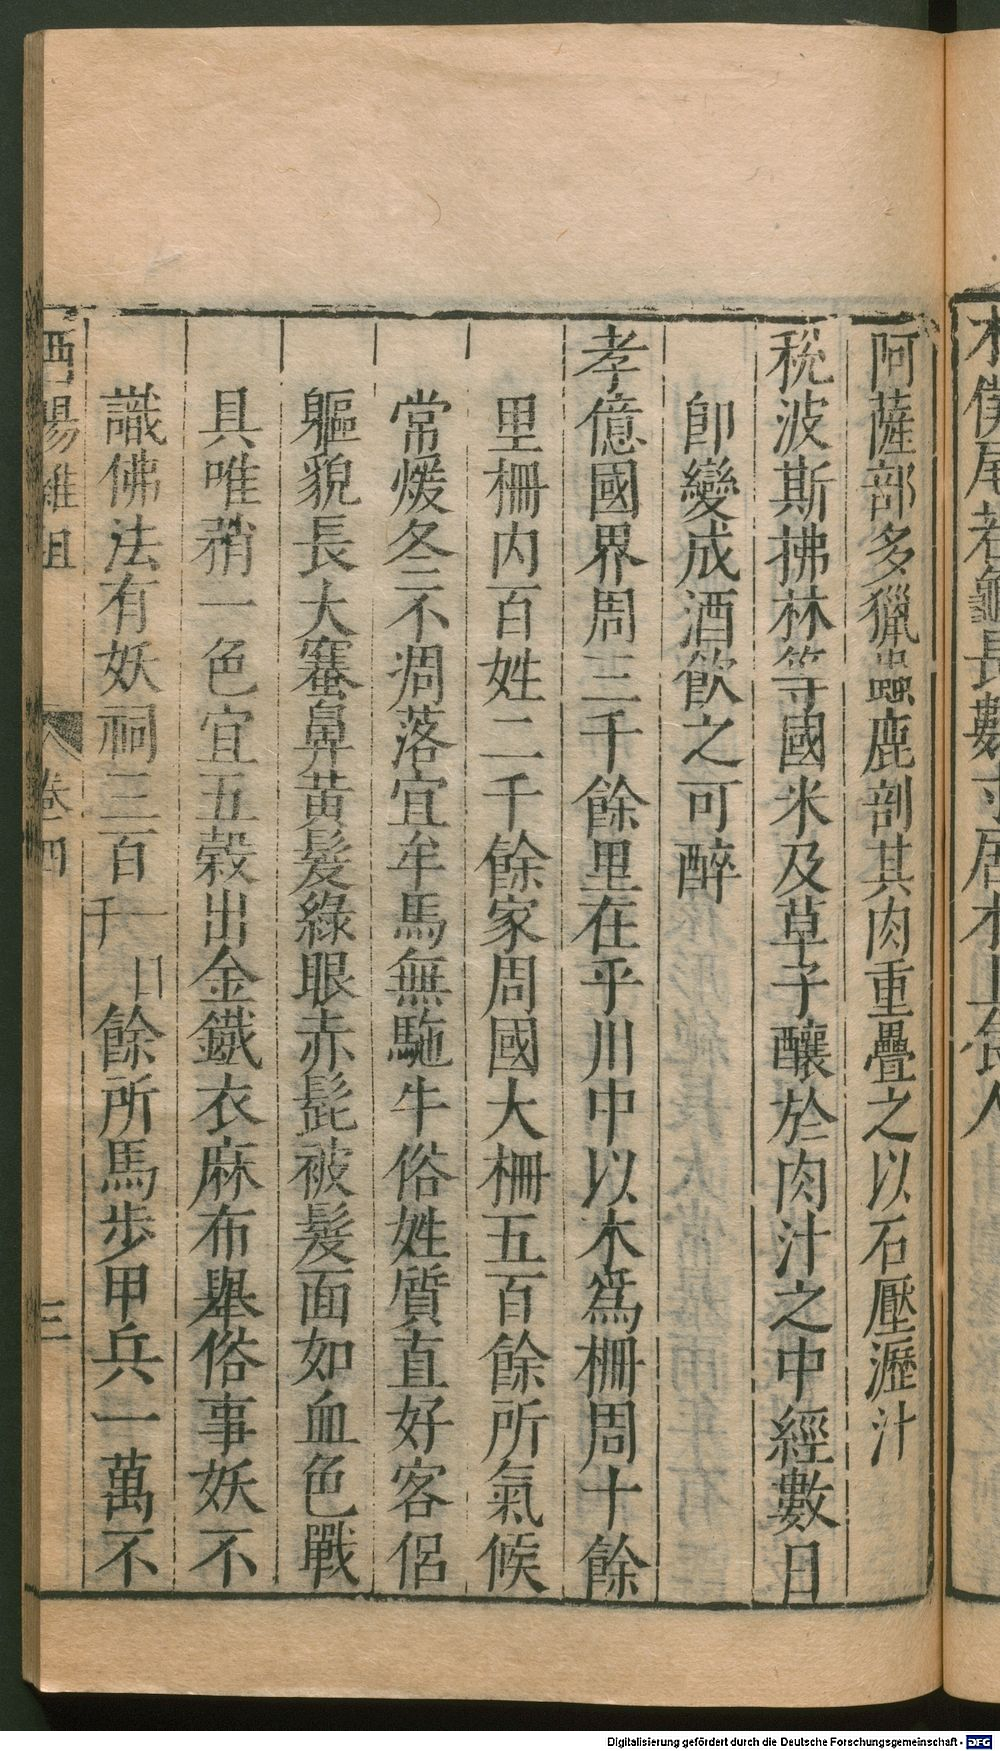 阿薩部多獵蟲鹿剖其肉重疊之以石壓瀝汁
稅波斯拂林等國米及草子釀於肉汁之中經數日
卽變成酒飲之可醉
孝億國界周三千餘里在乎川中以木爲柵周十餘
里柵内百姓二千餘家周國大柵五百餘所氣候
常煖冬三不凋落宜牟馬無駞牛俗姓質直好客侶
軀貌長大鶱鼻黃髮綠眼赤髭被髮面如血色戰
具唯矟一色宜五榖出金鐵衣麻布舉俗事妖不
識佛法有妖祠三百一千日餘所馬步甲兵一萬不
酉陽雜俎 卷四 三
Digitalisierung gefördert durch die Deutsche Forschungsgemeinschaft - DFG